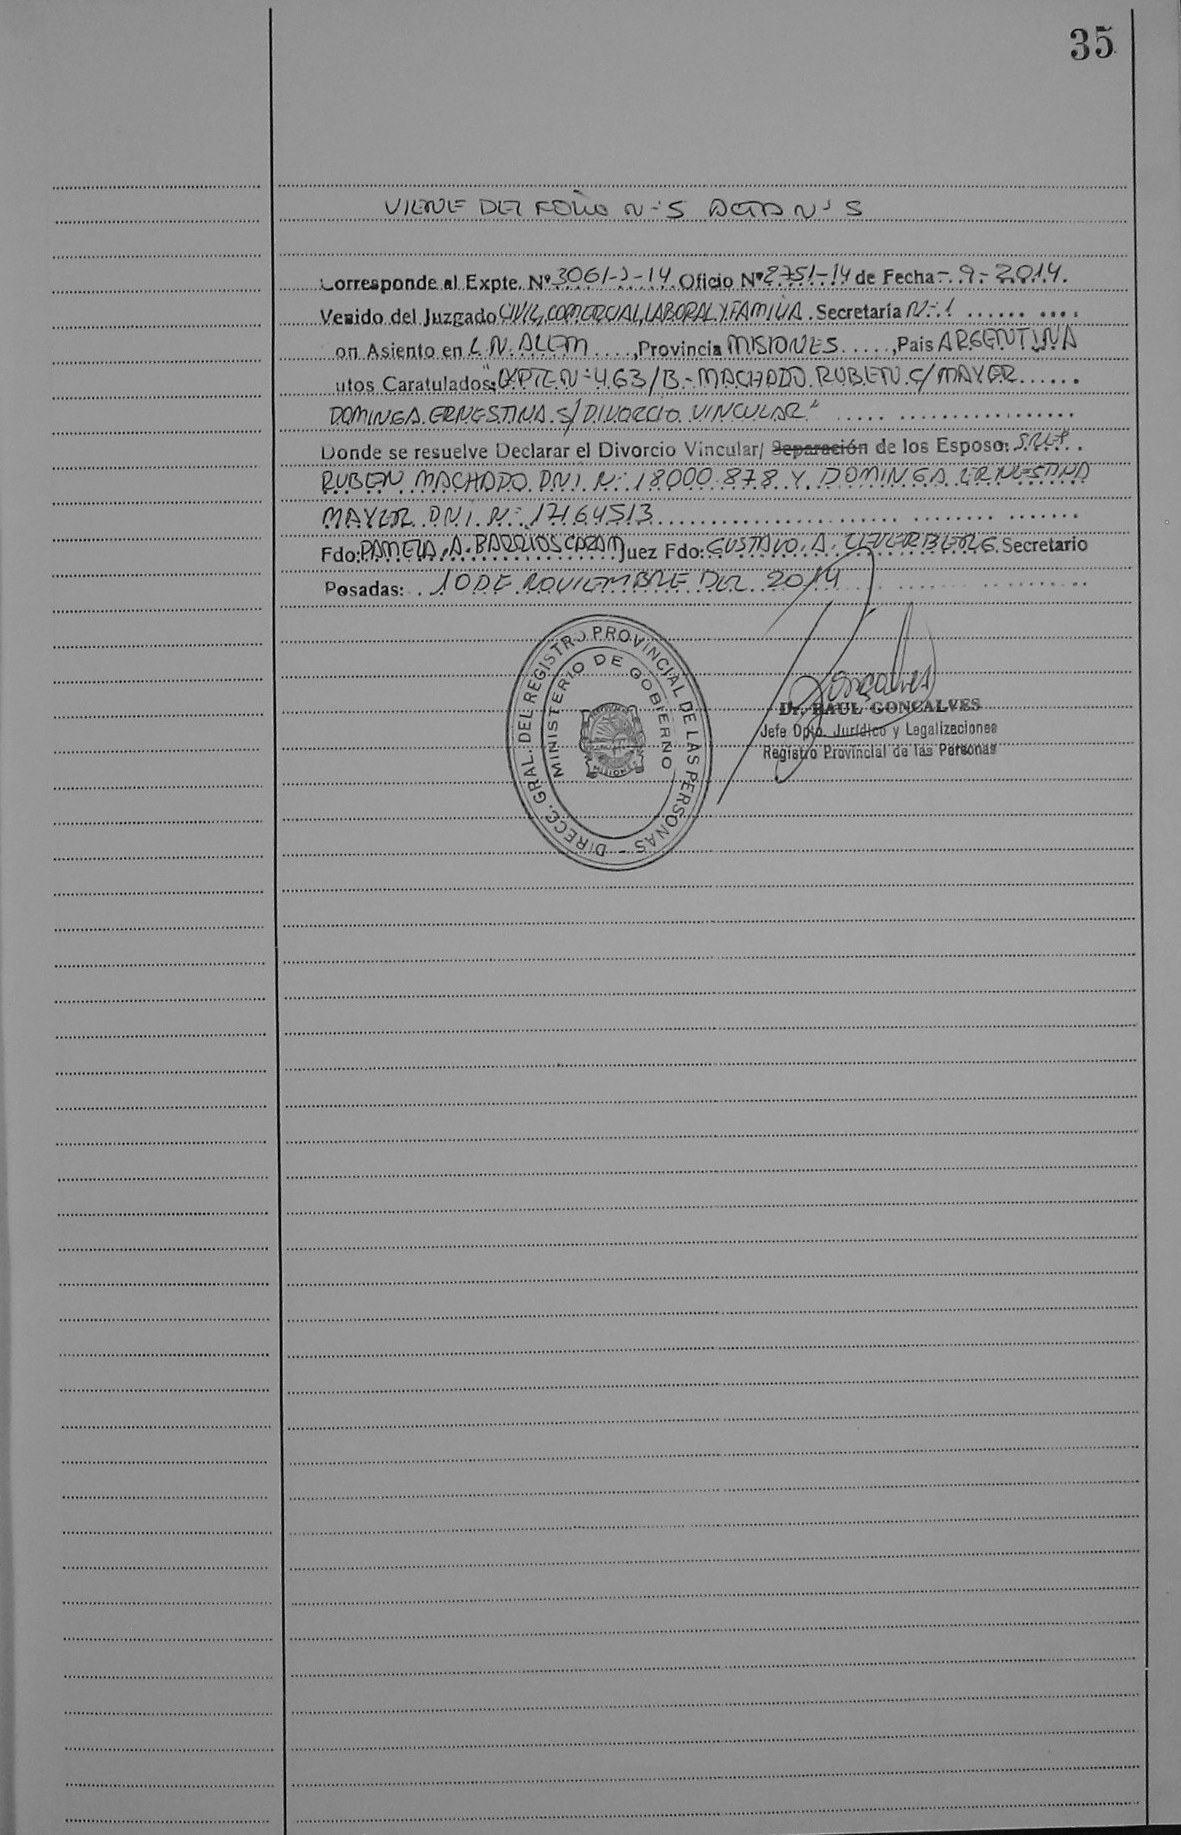 35
VIENE DEL FOLIO N-5 ACTA N-5
Corresponde al Expte. Nº 3061-J-14 Oficio Nº 2751-14 de Fecha -.9.-2.014.
Venido del Juzgado CIVIL, COMERCIAL, LABORAL Y FAMILIA. Secretaría N-1
on Asiento en L.N. ALEM ...., Provincia MISIONES ....., Pais ARGENTINA
utos Caratulados: "EXPTE. N-463/13.- MACHADO RUBEN C/ MAYER
DOMINGA ERNESTINA S/ DIVORCIO VINCULAR"
Donde se resuelve Declarar el Divorcio Vincular/ Separación de los Esposo: SRES.
RUBEN MACHADO D.N.I. N- 18.000.878 Y DOMINGA ERNESTINA
MAYER D.N.I. N- 17164513
Fdo: PAMELA A. BARRIOS CARAM Juez Fdo: GUSTAVO A. Secretario
Posadas: 10 DE NOVIEMBRE DEL 2014
DIRECC. GRAL. DEL REGISTRO PROVINCIAL DE LAS PERSONAS -
MINISTERIO DE GOBIERNO
MISIONES
Dr. RAUL GONCALVES
Jefe Dpto. Jurídico y Legalizaciones
Registro Provincial de las Personas